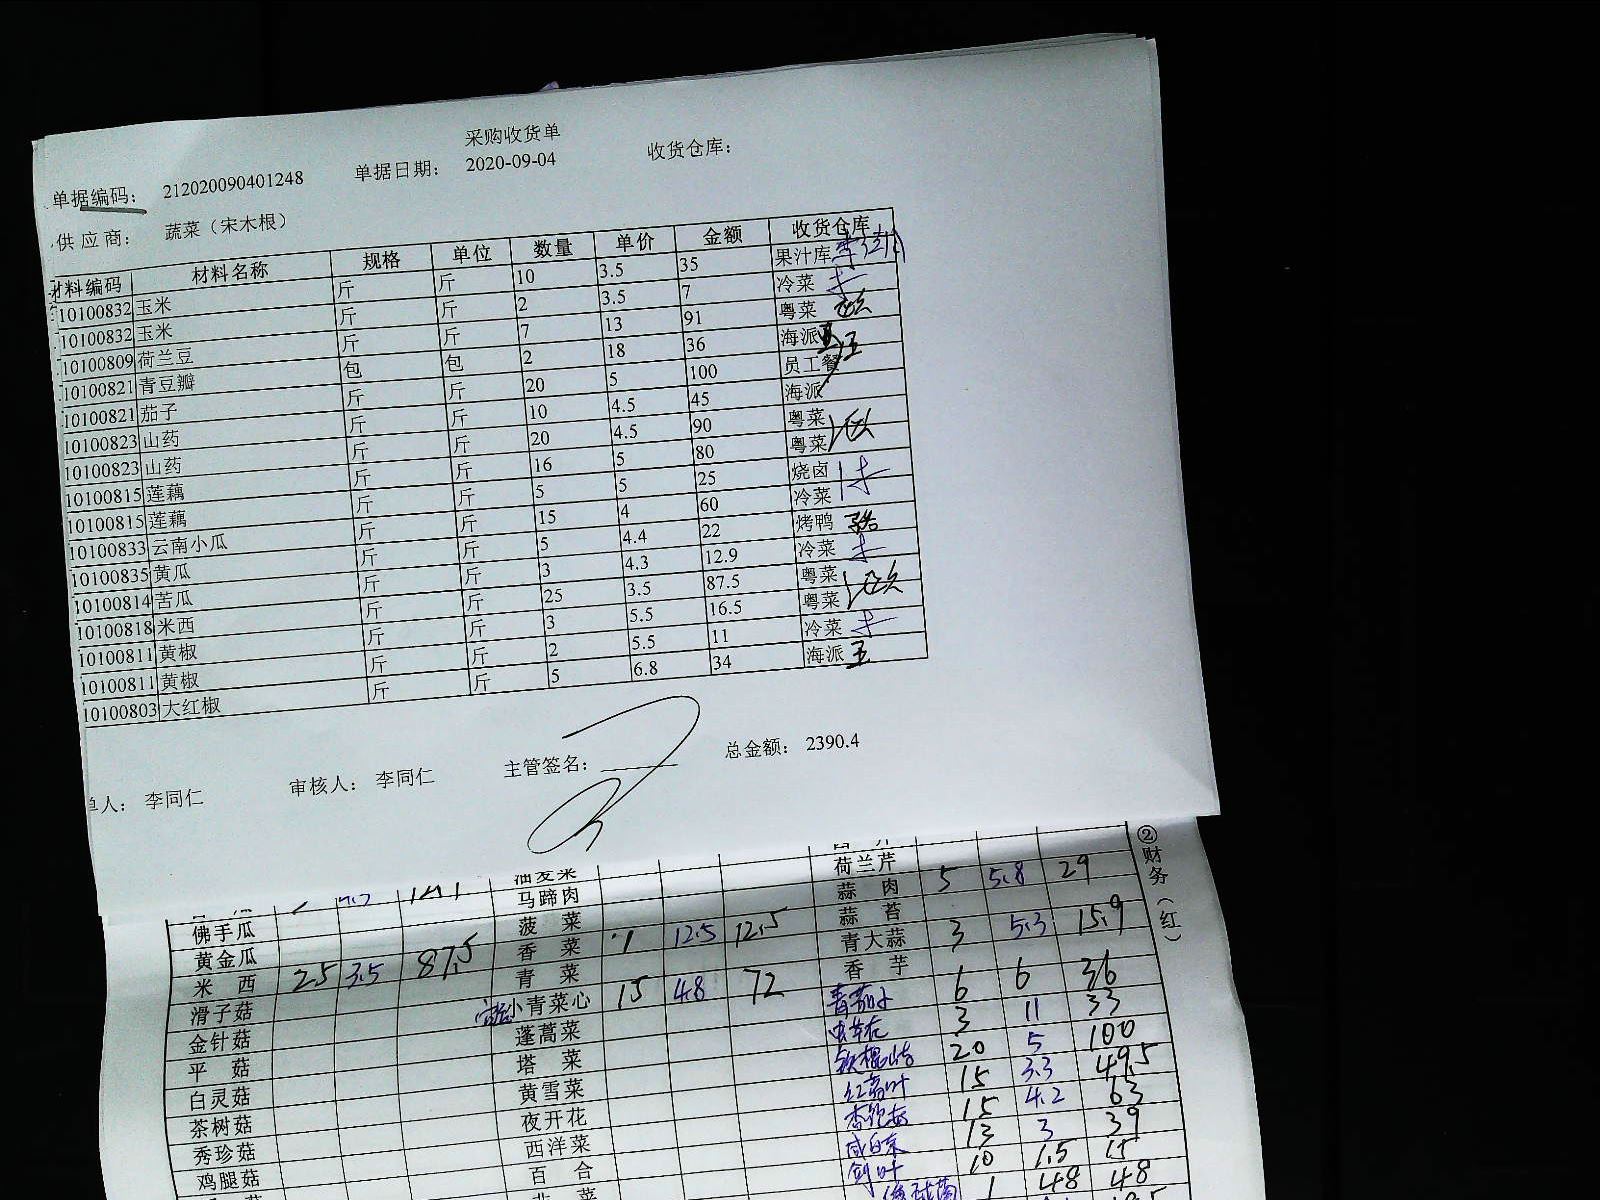 采购收货单
单据编码： 212020090401248 单据日期： 2020-09-04 收货仓库：
供应商： 蔬菜（宋木根）
材料编码 材料名称 规格 单位 数量 单价 金额 收货仓库
10100832 玉米 斤 斤 10 3.5 35 果汁库
10100832 玉米 斤 斤 2 3.5 7 冷菜
10100809 荷兰豆 斤 斤 7 13 91 粤菜
10100821 青豆瓣 包 包 2 18 36 海派
10100821 茄子 斤 斤 20 5 100 员工餐
10100823 山药 斤 斤 10 4.5 45 海派
10100823 山药 斤 斤 20 4.5 90 粤菜
10100815 莲藕 斤 斤 16 5 80 粤菜
10100815 莲藕 斤 斤 5 5 25 烧卤
10100833 云南小瓜 斤 斤 15 4 60 冷菜
10100835 黄瓜 斤 斤 5 4.4 22 烤鸭
10100814 苦瓜 斤 斤 3 4.3 12.9 冷菜
10100818 米西 斤 斤 25 3.5 87.5 粤菜
10100811 黄椒 斤 斤 3 5.5 16.5 粤菜
10100811 黄椒 斤 斤 2 5.5 11 冷菜
10100803 大红椒 斤 斤 5 6.8 34 海派 王
单人： 李同仁 审核人： 李同仁 主管签名： 总金额： 2390.4
②财务（红）
油麦菜 荷兰芹
马蹄肉 蒜肉 5 5.8 29
佛手瓜 菠菜 蒜苔
黄金瓜 香菜 1 12.5 12.5 青大蒜 3 5.3 15.9
米西 25 3.5 87.5 青菜 香芋 6 6 36
滑子菇 小青菜心 15 4.8 72 3 11 33
金针菇 蓬蒿菜 20 5 100
平菇 塔菜 15 3.3 49.5
白灵菇 黄雪菜 15 4.2 63
茶树菇 夜开花 13 3 39
秀珍菇 西洋菜 10 1.5 15
鸡腿菇 百合 1 48 48